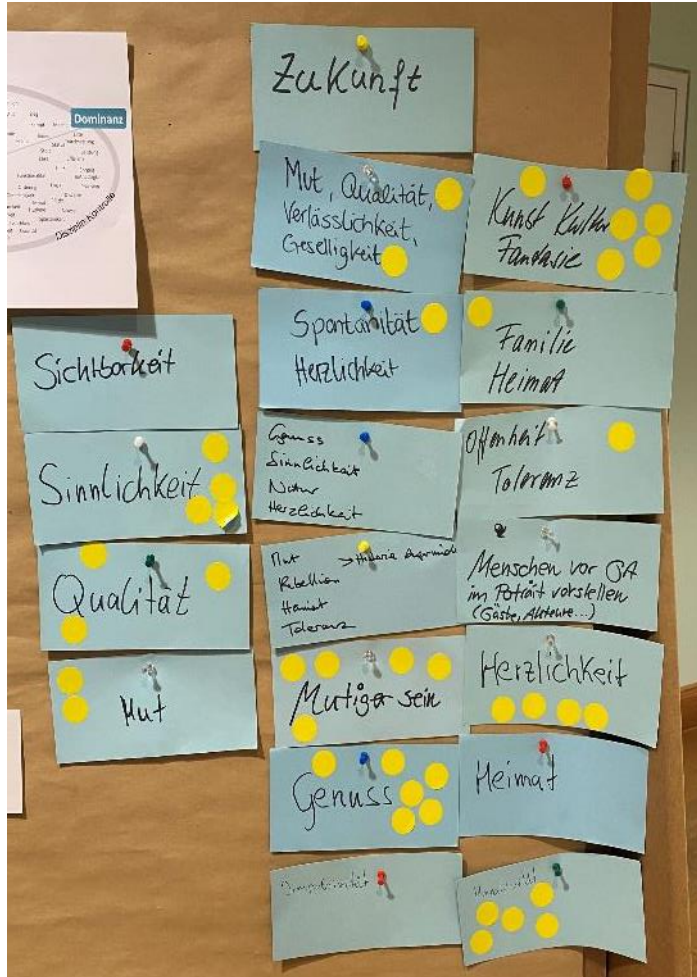 Dominanz
Disziplin/Kontrolle
Sichtbarkeit
Sinnlichkeit
Qualität
Mut
Zukunft
Mut, Qualität,
Verlässlichkeit,
Geselligkeit
Spontanität
Herzlichkeit
Genuss
Sinnlichkeit
Natur
Herzlichkeit
Mut
Rebellion
Heimat
Toleranz
Mutiger sein
Genuss
Kunst Kultur
Fantasie
Familie
Heimat
Offenheit
Toleranz
Menschen vor
im Poträit vorstellen
(Gäste, Akteure...)
Herzlichkeit
Heimat